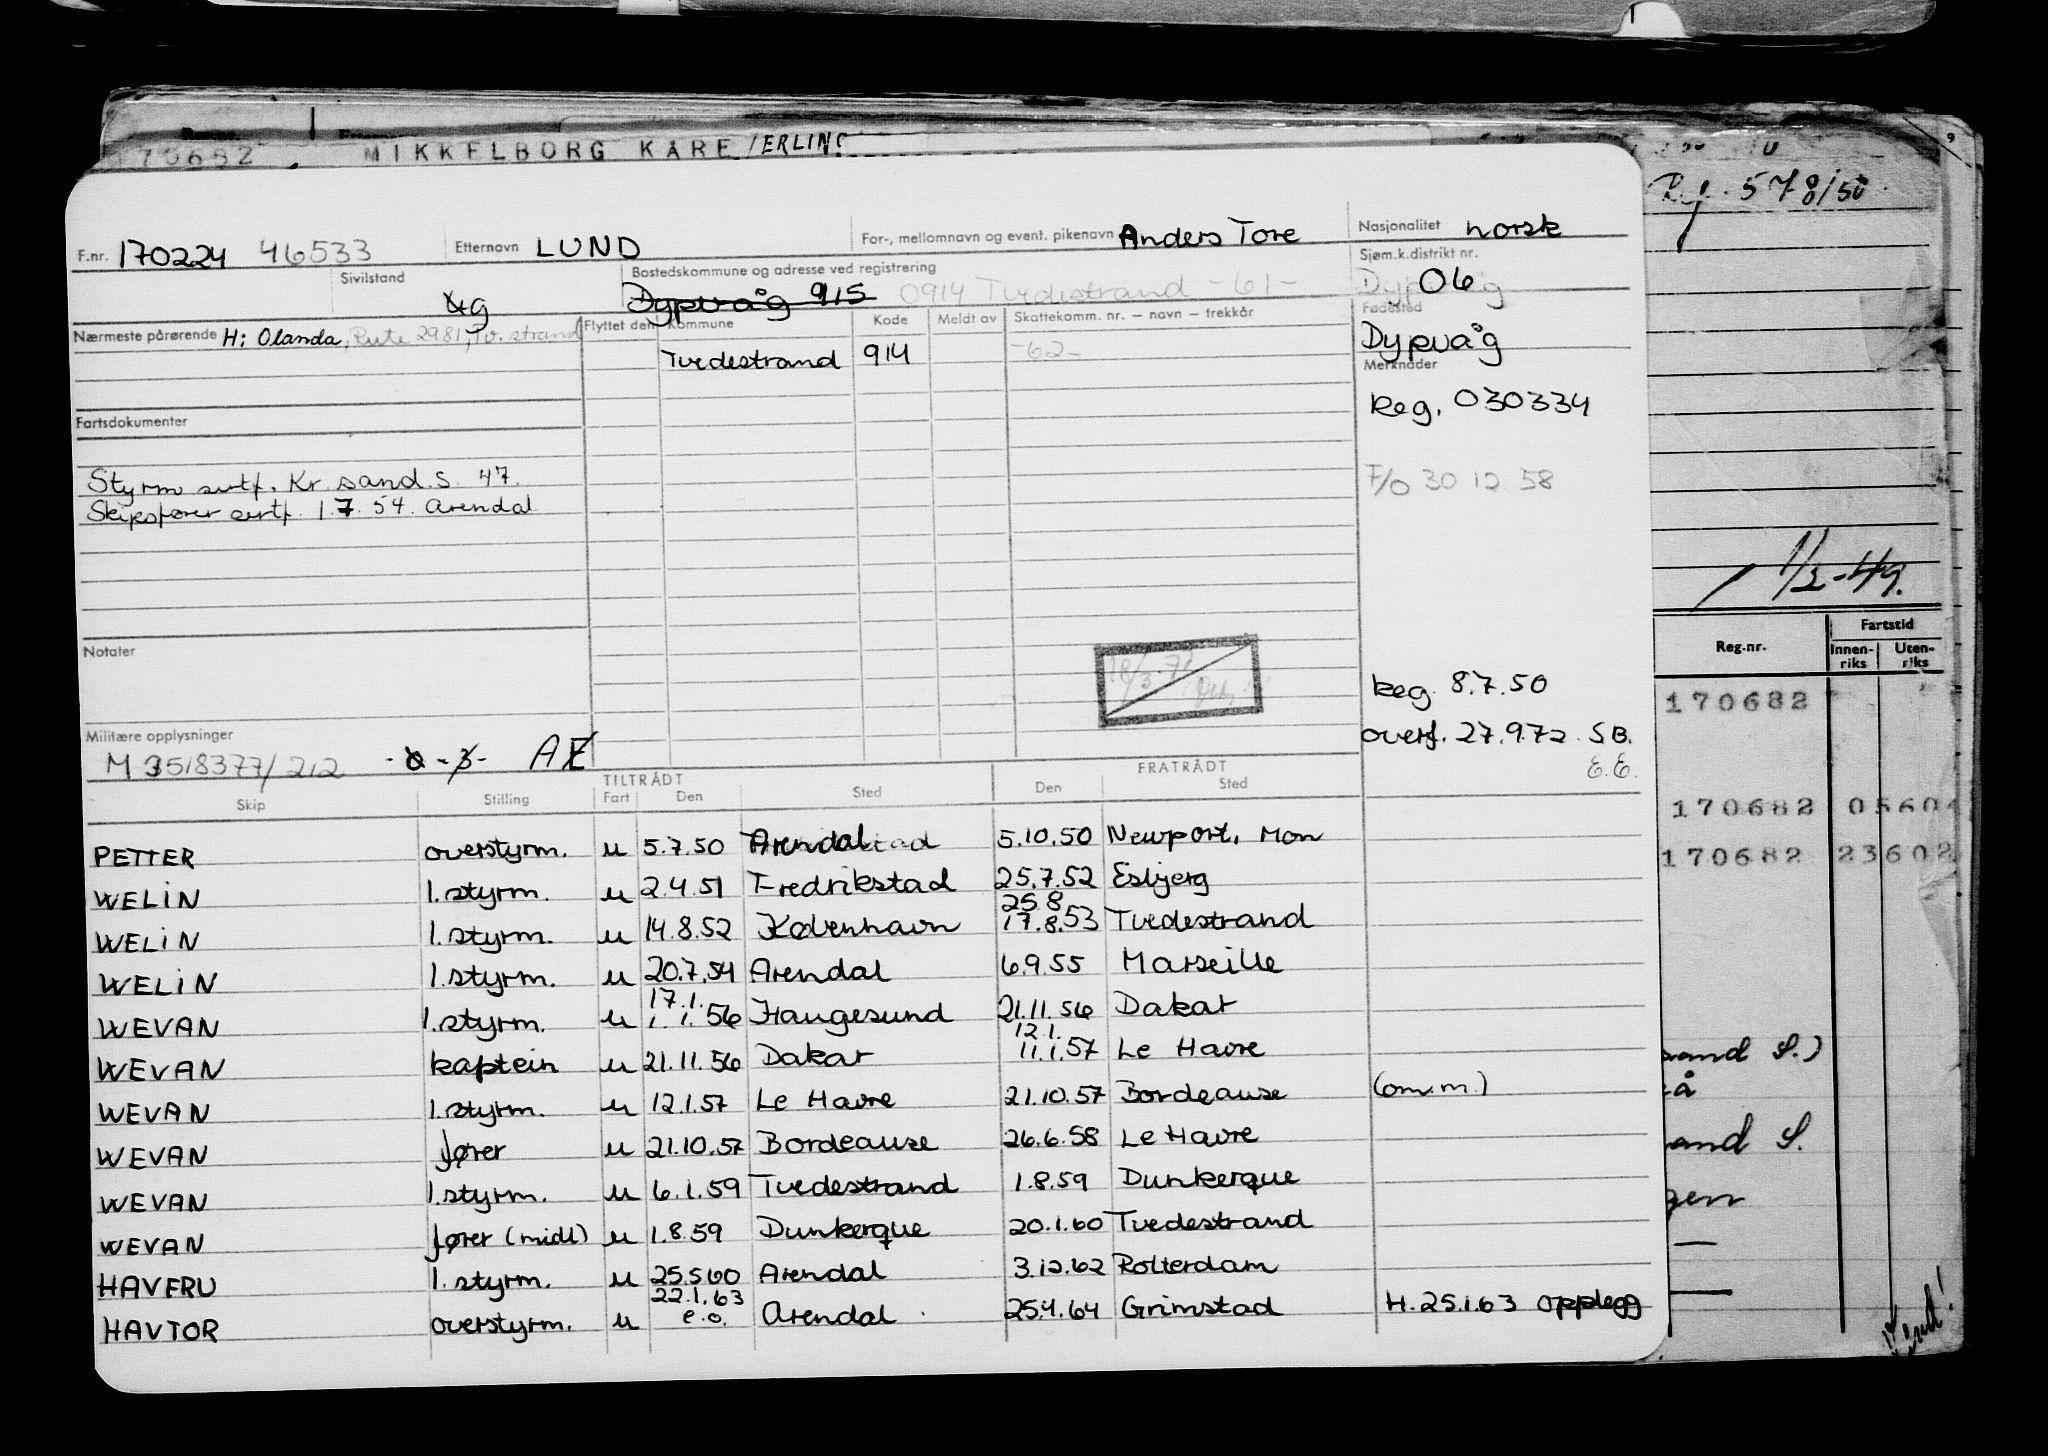 170682 MIKKELBORG KÅRE/ERLING
Reg. 578/50
F.nr. 170224 46533 Etternavn LUND For-, mellomnavn og event. pikenavn Anders Tore Nasjonalitet norsk
Sivilstand g Bostedskommune og adresse ved registrering Dypvåg 915 0914 Tvedestrand -61- Sjøm.k.distrikt nr. 06
Nærmeste pårørende H: Olanda, Rute 2981, Tv.strand Flyttet den Kommune Kode Meldt av Skattekomm. nr. — navn — trekkår Fødested
Tvedestrand 914 -62- Dypvåg
Merknader
Reg. 030334
Fartsdokumenter
Styrm sertf. Kr sand. S. 47. F/O 30 12 58
Skipsfører sertf. 1.7.54. Arendal
1/3-49.
Notater
Reg. 8.7.50
Militære opplysninger
M 3518377/212 overf. 27.9.72 S.B.
E.E.
TILTRÅDT FRATRÅDT
Skip Stilling Fart Den Sted Den Sted
PETTER overstyrm. u 5.7.50 Arendal 5.10.50 Newport, Mon
WELIN 1.styrm. u 2.4.51 Fredrikstad 25.7.52 Esbjerg
25.8
WELIN 1.styrm. u 14.8.52 København 17.8.53 Tvedestrand
WELIN 1.styrm. u 20.7.54 Arendal 6.9.55 Marseille
17.1.
WEVAN 1.styrm. u 1.1.56 Haugesund 21.11.56 Dakar
12.1.
WEVAN kaptein u 21.11.56 Dakar 11.1.57 Le Havre
WEVAN 1.styrm. u 12.1.57 Le Havre 21.10.57 Bordeause (om.m.)
WEVAN fører u 21.10.57 Bordeause 26.6.58 Le Havre
WEVAN 1.styrm. u 6.1.59 Tvedestrand 1.8.59 Dunkerque
WEVAN fører (midl) u 1.8.59 Dunkerque 20.1.60 Tvedestrand
HAVFRU 1.styrm. u 25.5.60 Arendal 3.12.62 Rotterdam
22.1.63
HAVTOR overstyrm. u e.o. Arendal 25.4.64 Grimstad H.25.1.63 opplegg
Reg.nr. Fartstid
Innen-riks Uten-riks
170682
170682 05604
170682 23602
sand S.)
and S.
gen